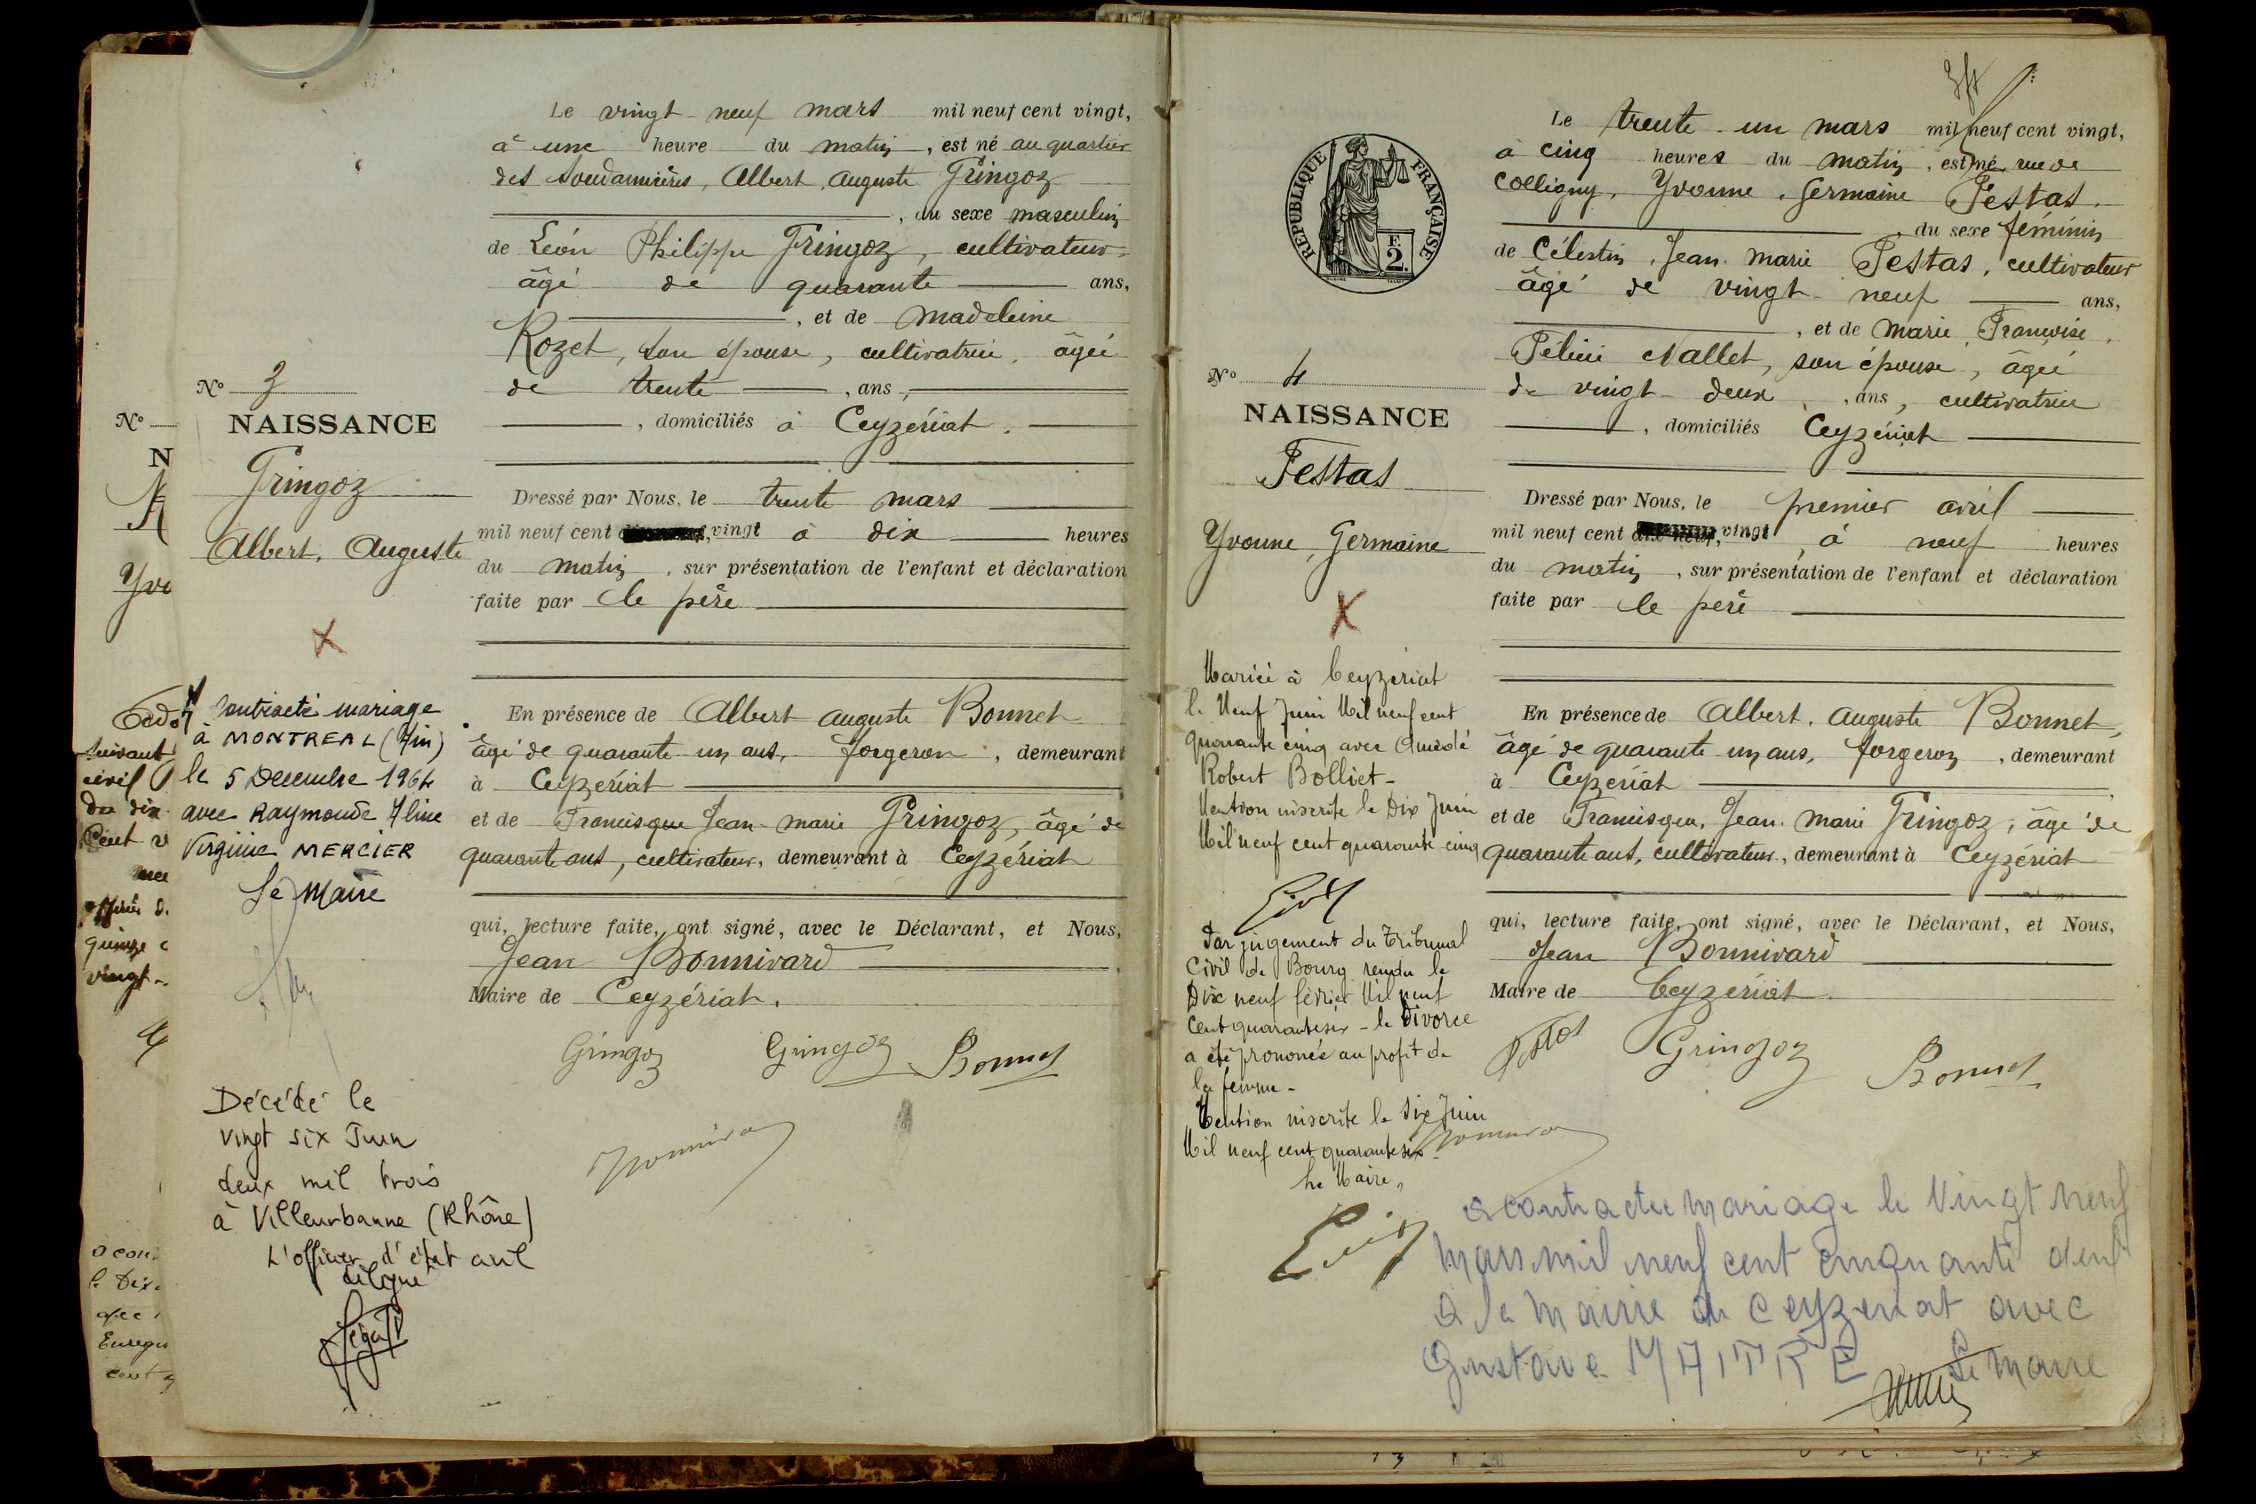 Le vingt-neuf mars mil neuf cent vingt,
à une heure du matin, est né au quartier
des Soudanières, Albert, Auguste Gringoz
, du sexe masculin
de Léon Philippe Gringoz, cultivateur
âgé de quarante ans,
, et de Madeleine
Rozet, son épouse, cultivatrice, âgée
de trente, ans,
, domiciliés à Ceyzériat.
N° 3
NAISSANCE
Gringoz
Albert, Auguste
Dressé par Nous, le trente mars
mil neuf cent vingt à dix heures
du matin, sur présentation de l'enfant et déclaration
faite par le père
En présence de Albert Auguste Bonnet
âgé de quarante un ans, forgeron, demeurant
à Ceyzériat
et de Francisque Jean-Marie Gringoz, âgé de
quarante ans, cultivateur, demeurant à Ceyzériat
qui, lecture faite, ont signé, avec le Déclarant, et Nous,
Jean Bonnivard
Maire de Ceyzériat.
Gringoz Gringoz Bonnet
contracté mariage
à MONTREAL (Ain)
le 5 Decembre 1964
avec Raymonde Aline
Virginie MERCIER
Le Maire
Décédé le
vingt six Juin
deux mil trois
à Villeurbanne (Rhône)
L'officier d'état civil
délégué
N°
suivant
civil
du dix
Cent
quinze
vingt-
Le trente-un mars mil neuf cent vingt,
à cinq heures du matin, est né rue de
Colligny, Yvonne, Germaine Festas.
, du sexe féminin
de Célestin, Jean-Marie Festas, cultivateur
âgé de vingt-neuf ans,
, et de Marie, Françoise,
Félicie Nallet, son épouse, âgée
de vingt-deux, ans, cultivatrice
, domiciliés Ceyzériat
RÉPUBLIQUE FRANÇAISE
F.
2.
N° 4
NAISSANCE
Festas
Yvonne, Germaine
Dressé par Nous, le premier avril
mil neuf cent vingt, à neuf heures
du matin, sur présentation de l'enfant et déclaration
faite par le père
En présence de Albert, Auguste Bonnet,
âgé de quarante-un ans, forgeron, demeurant
à Ceyzériat
et de Francisque, Jean-Marie Gringoz, âgé de
quarante ans, cultivateur, demeurant à Ceyzériat
qui, lecture faite, ont signé, avec le Déclarant, et Nous,
Jean Bonnivard
Maire de Ceyzériat.
Festas Gringoz Bonnet
Mariée à Ceyzériat
le Neuf Juin Mil neuf cent
quarante cinq avec Amédé
Robert Bolliet-
Mention inscrite le Dix Juin
Mil neuf cent quarante cinq
Par jugement du Tribunal
Civil de Bourg rendu le
Dix neuf février Mil neuf
Cent quarante six - le Divorce
a été prononcé au profit de
la femme-
Mention inscrite le Six Juin
Mil neuf cent quarante six-
Le Maire,
a contractée mariage le Vingt neuf
mars mil neuf cent cinquante deux
à la Mairie de Ceyzeriat avec
Gustave MAITRE Le Maire